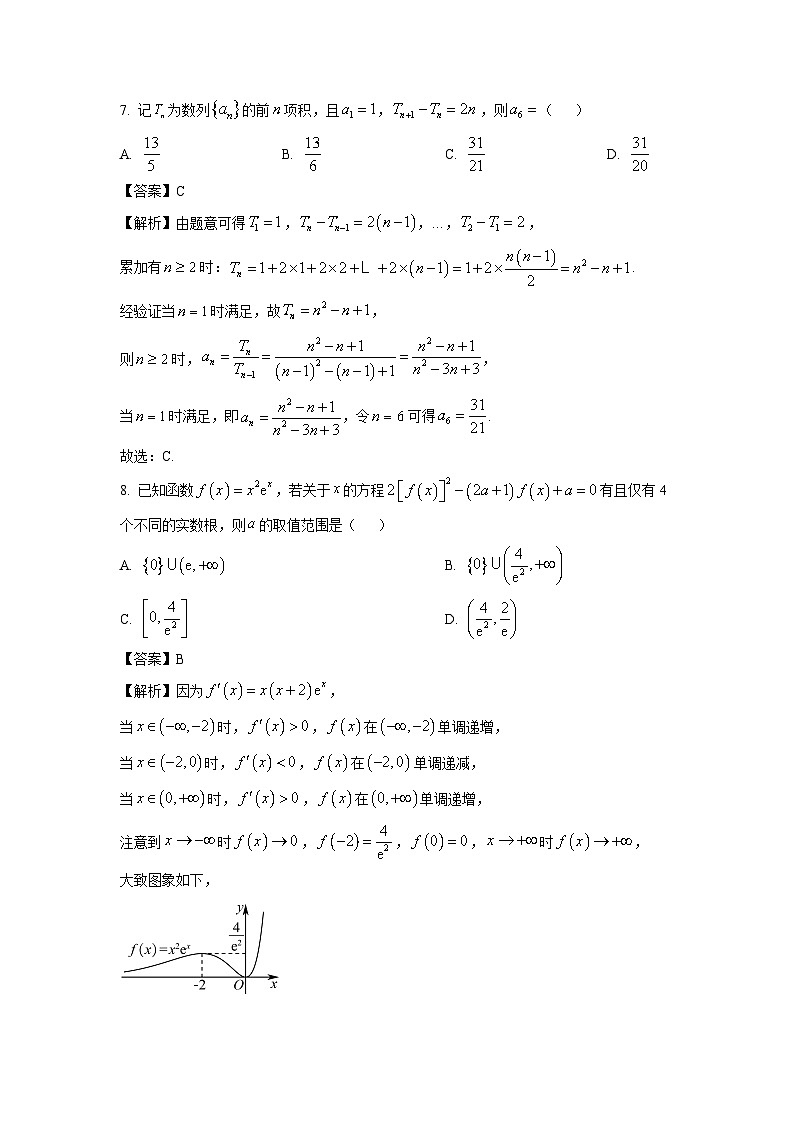 7. 记Tₙ为数列{aₙ}的前n项积，且a₁ = 1，Tₙ₊₁ − Tₙ = 2n，则a₆ =（ ）
A. 13/5 B. 13/6 C. 31/21 D. 31/20
【答案】C
【解析】由题意可得T₁ = 1，Tₙ − Tₙ₋₁ = 2(n−1)，…，T₂ − T₁ = 2，
累加有n ≥ 2时：Tₙ = 1+2×1+2×2+L +2×(n−1) = 1+2×n(n−1)/2 = n² − n+1.
经验证当n = 1时满足，故Tₙ = n² − n+1，
则n ≥ 2时，aₙ = Tₙ/Tₙ₋₁ = (n² − n+1)/((n−1)² − (n−1)+1) = (n² − n+1)/(n² − 3n+3)，
当n = 1时满足，即aₙ = (n² − n+1)/(n² − 3n+3)，令n = 6可得a₆ = 31/21.
故选：C.
8. 已知函数f(x) = x²eˣ，若关于x的方程2[f(x)]² − (2a+1)f(x)+a = 0有且仅有4
个不同的实数根，则a的取值范围是（ ）
A. {0}∪(e,+∞) B. {0}∪(4/e²,+∞)
C. [0,4/e²] D. (4/e²,2/e)
【答案】B
【解析】因为f′(x) = x(x+2)eˣ，
当x∈(−∞,−2)时，f′(x) > 0，f(x)在(−∞,−2)单调递增，
当x∈(−2,0)时，f′(x) < 0，f(x)在(−2,0)单调递减，
当x∈(0,+∞)时，f′(x) > 0，f(x)在(0,+∞)单调递增，
注意到x→−∞时f(x)→0，f(−2) = 4/e²，f(0) = 0，x→+∞时f(x)→+∞，
大致图象如下，
y
4/e²
f(x)=x²eˣ
-2 O x